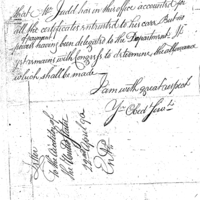 that Mr. Judd has in this office accounted for
all the certificates entrusted to his care. But no
power having been delegated to the Department It
yet remains with Congress to determine the allowance
which shall be made
I am with great respect
Yr. Obed Serv.t
Letter
To the Auditor of
the United States